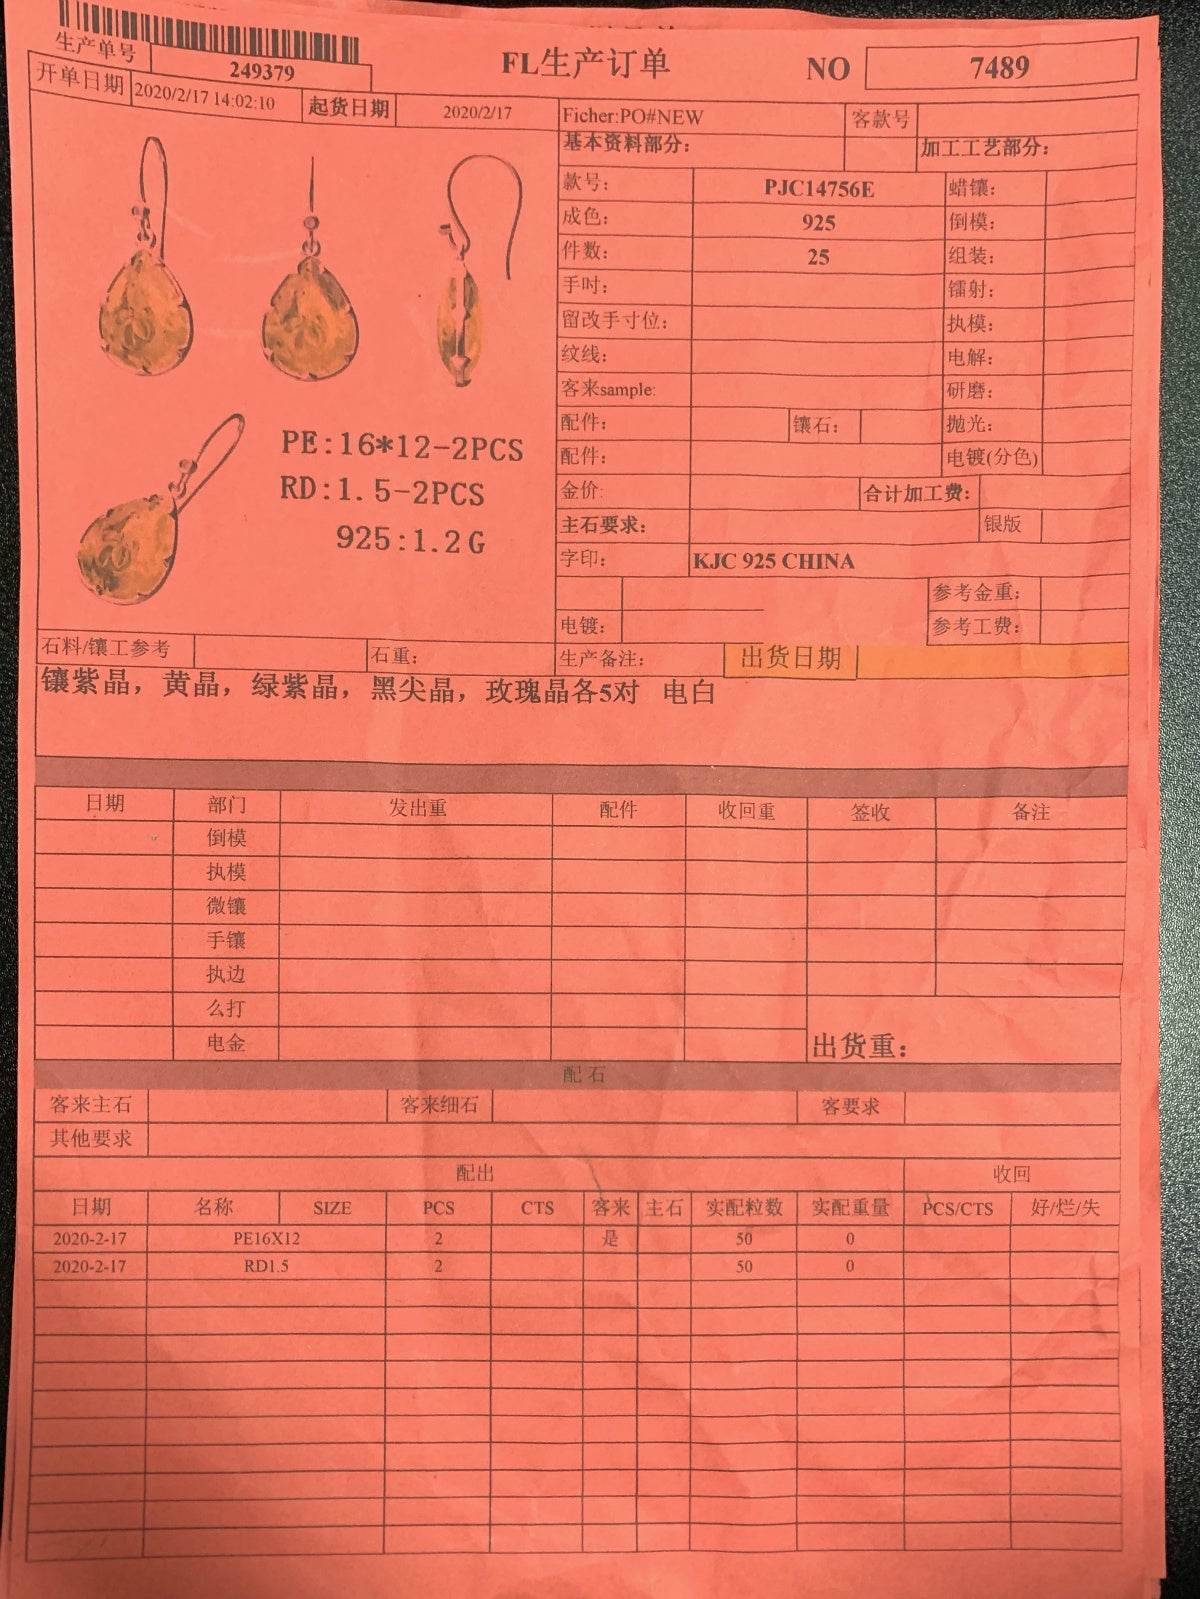 生产单号
249379
FL生产订单
NO 7489
开单日期 2020/2/17 14:02:10 起货日期 2020/2/17
Ficher:PO#NEW 客款号
基本资料部分： 加工工艺部分：
款号： PJC14756E 蜡镶：
成色： 925 倒模：
件数： 25 组装：
手吋： 镭射：
留改手寸位： 执模：
纹线： 电解：
客来sample: 研磨：
配件： 镶石： 抛光：
配件： 电镀(分色)
金价： 合计加工费：
主石要求： 银版
字印： KJC 925 CHINA
参考金重：
电镀： 参考工费：
PE:16*12-2PCS
RD:1.5-2PCS
925:1.2G
石料/镶工参考 石重： 生产备注： 出货日期
镶紫晶，黄晶，绿紫晶，黑尖晶，玫瑰晶各5对 电白
日期 部门 发出重 配件 收回重 签收 备注
倒模
执模
微镶
手镶
执边
么打
电金 出货重：
配 石
客来主石 客来细石 客要求
其他要求
配出 收回
日期 名称 SIZE PCS CTS 客来 主石 实配粒数 实配重量 PCS/CTS 好/烂/失
2020-2-17 PE16X12 2 是 50 0
2020-2-17 RD1.5 2 50 0